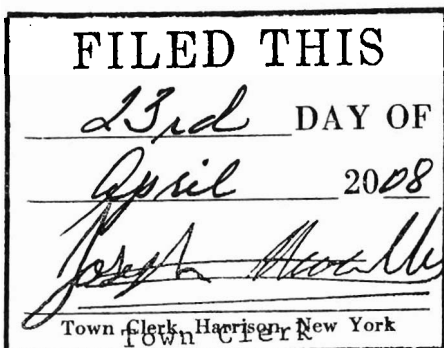 FILED THIS
23rd DAY OF
April 2008
Joseph
Town Clerk, Harrison, New York
Town Clerk